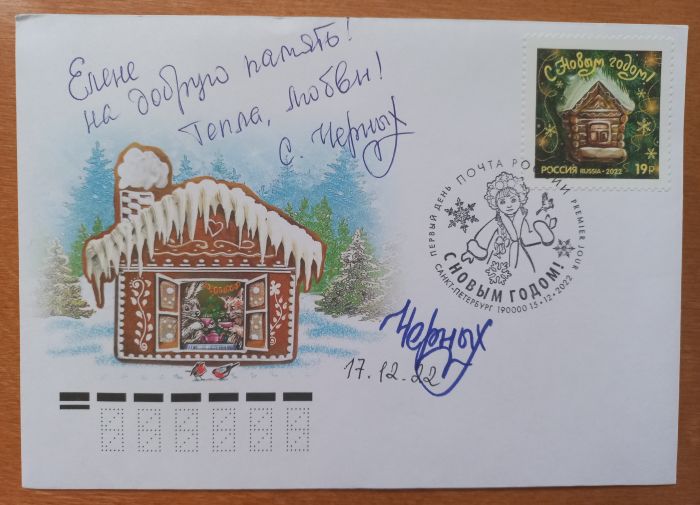 Елене
на добрую память!
Тепла, любви!
С. Черных
С Новым годом!
РОССИЯ RUSSIA • 2022 19 Р
ПЕРВЫЙ ДЕНЬ ПОЧТА РОССИИ PREMIER JOUR
С НОВЫМ ГОДОМ!
САНКТ-ПЕТЕРБУРГ 190000 15•12•2022
Черных
17.12.22